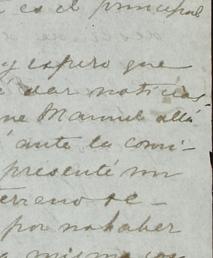 es el principal
y espero que
dar noticias
ne Manuel allá
ante la comi-
presenté un
terreno de-
por no haber
misma con